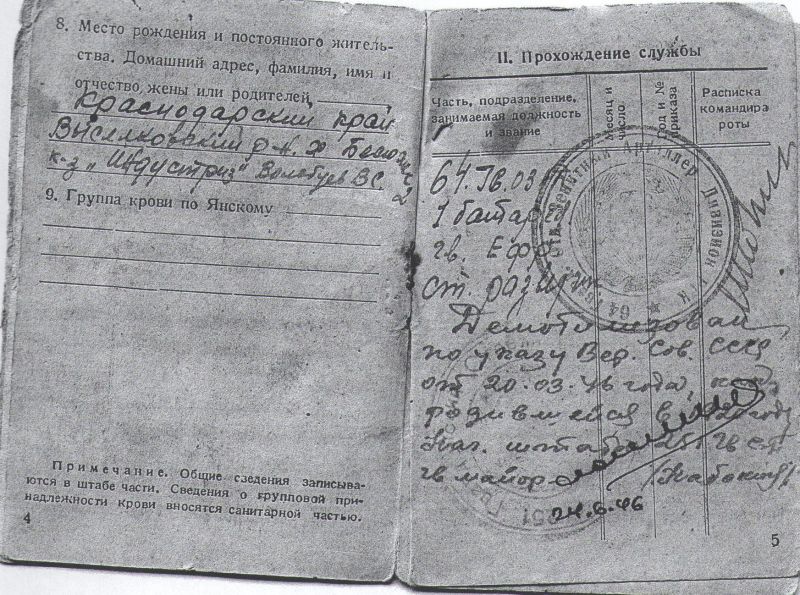 8. Место рождения и постоянного житель-
ства. Домашний адрес, фамилия, имя и
отчество жены или родителей
Краснодарский край
Выселковский р.н. х
к-з "Индустрия" В.С.
9. Группа крови по Янскому
Примечание. Общие сведения записыва-
ются в штабе части. Сведения о групповой при-
надлежности крови вносятся санитарной частью.
4
II. Прохождение службы
Часть, подразделение, занимаемая должность и звание
Месяц и число
Год и № приказа
Расписка командира роты
64 Гв. ОЗ
1 батар
гв. Ефр
ст. разв
Зенитный Артиллер Дивизион
64
Демобилизован
по указу Вер. Сов. СССР
от 20.03.46 года, как
родившейся в году
Нач. штаба 251 гв
гв майор
251
24.6.46
5